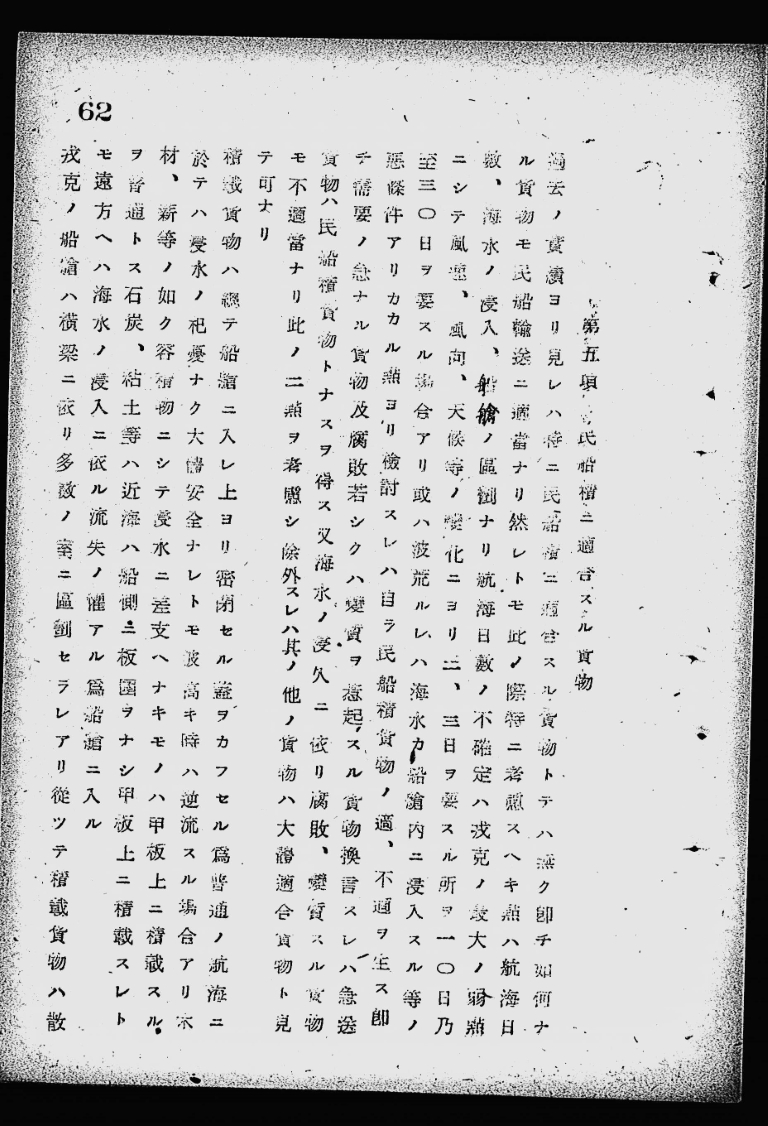 62
第五項 民船積ニ適合スル貨物
過去ノ實績ヨリ見レハ特ニ民船積ニ適合スル貨物トテハ無ク卽チ如何ナ
ル貨物モ民船輸送ニ適當ナリ然レトモ此ノ際特ニ考慮スヘキ點ハ航海日
數、海水ノ浸入、船艙ノ區劃ナリ航海日數ノ不確定ハ戎克ノ最大ノ弱點
ニシテ風速、風向、天候等ノ變化ニヨリ二、三日ヲ要スル所ヲ一〇日乃
至三〇日ヲ要スル場合アリ或ハ波荒ルレハ海水カ船艙内ニ浸入スル等ノ
惡條件アリカカル點ヨリ檢討スレハ自ラ民船積貨物ノ適、不適ヲ生ス卽
チ需要ノ急ナル貨物及腐敗若シクハ變質ヲ惹起スル貨物換言スレハ急送
貨物ハ民船積貨物トナスヲ得ス又海水ノ浸入ニ依リ腐敗、變質スル貨物
モ不適當ナリ此ノ二點ヲ考慮シ除外スレハ其ノ他ノ貨物ハ大體適合貨物ト見
テ可ナリ
積載貨物ハ總テ船艙ニ入レ上ヨリ密閉セル蓋ヲカフセル爲普通ノ航海ニ
於テハ浸水ノ杞憂ナク大體安全ナレトモ波高キ時ハ逆流スル場合アリ木
材、薪等ノ如ク容積物ニシテ浸水ニ差支ヘナキモノハ甲板上ニ積載スル
ヲ普通トス石炭、粘土等ハ近海ハ船側ニ板圍ヲナシ甲板上ニ積載スレト
モ遠方ヘハ海水ノ浸入ニ依ル流失ノ懼アル爲船艙ニ入ル
戎克ノ船艙ハ横梁ニ依リ多數ノ室ニ區劃セラレアリ從ツテ積載貨物ハ散